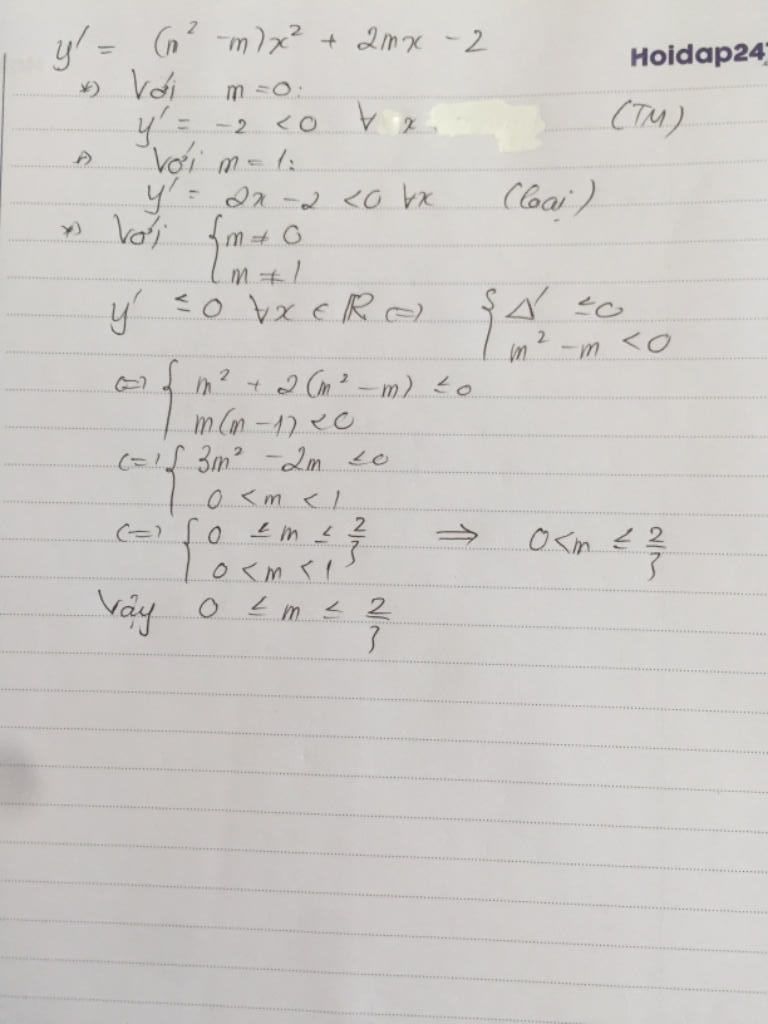 y' = (m² - m)x² + 2mx - 2
Hoidap247
*) Với m = 0:
y' = -2 < 0 ∀ x (TM)
*) Với m = 1:
y' = 2x - 2 < 0 ∀x (loại)
*) Với { m ≠ 0
m ≠ 1
y' ≤ 0 ∀x ∈ ℝ <=> { Δ' ≤ 0
m² - m < 0
<=> { m² + 2(m² - m) ≤ 0
m(m - 1) < 0
<=> { 3m² - 2m ≤ 0
0 < m < 1
<=> { 0 ≤ m ≤ 2/3 ⇒ 0 < m ≤ 2/3
0 < m < 1
Vậy 0 ≤ m ≤ 2/3